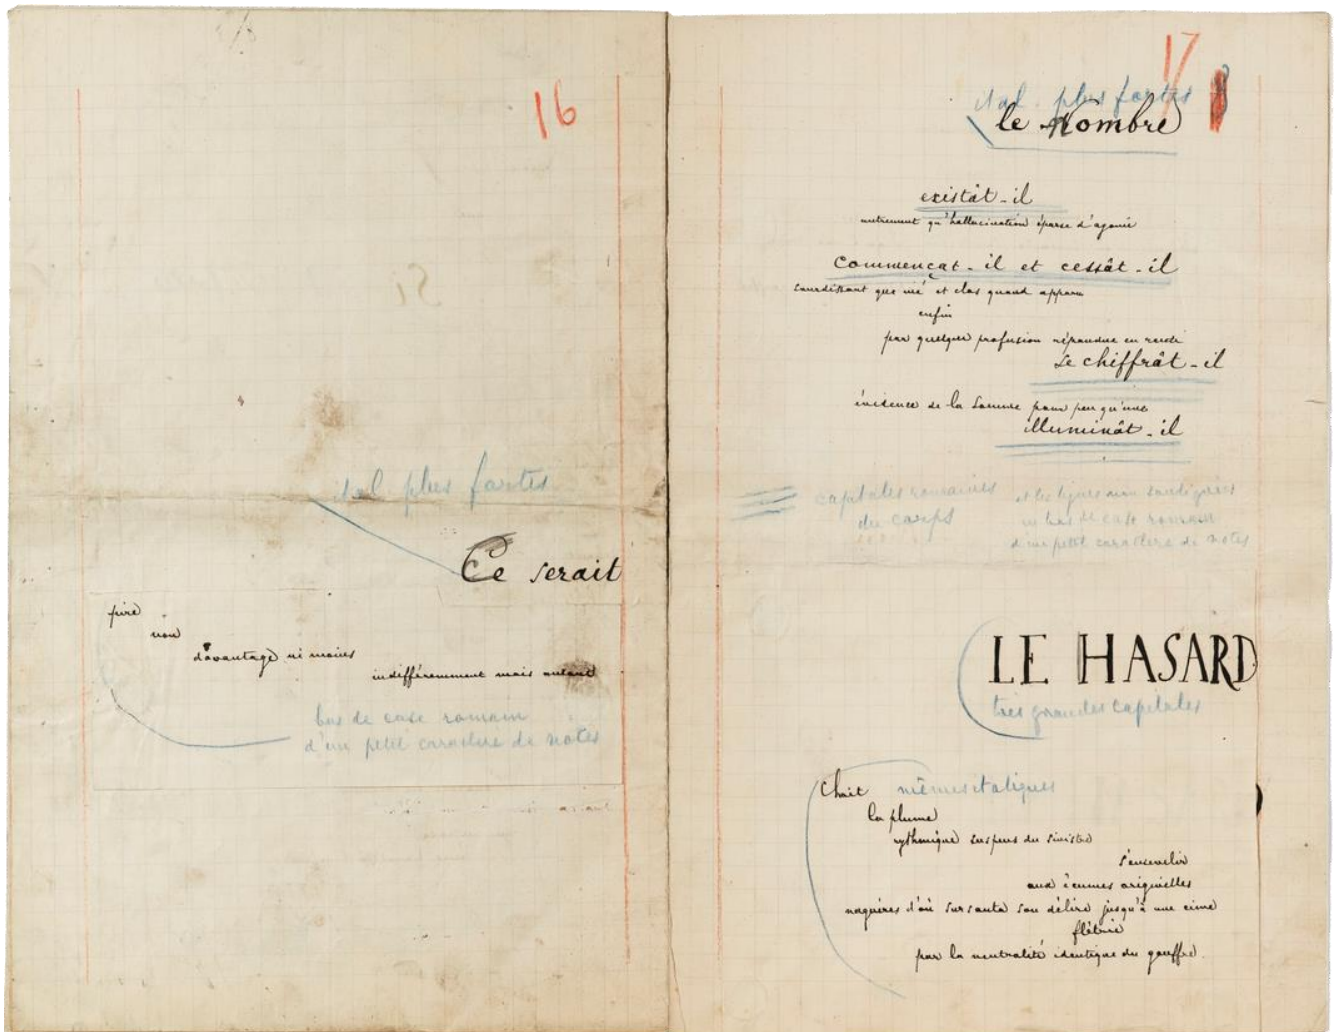 16
ital plus fortes
Ce serait
pire
non
davantage ni moins
indifféremment mais autant
bas de case romain
d'un petit caractère de notes
17
ital. plus fortes
le Nombre
existât-il
autrement qu'hallucination éparse d'agonie
commençât-il et cessât-il
sourdissant que nié et clos quand apparu
enfin
par quelque profusion répandue en rareté
se chiffrât-il
évidence de la somme pour peu qu'une
illuminât-il
capitales romaines
du corps
et les lignes non soulignées
en bas de case romain
d'un petit caractère de notes
LE HASARD
très grandes capitales
Choit
mêmes italiques
la plume
rythmique suspens du sinistre
s'ensevelir
aux écumes originelles
naguères d'où sursauta son délire jusqu'à une cime
flétrie
par la neutralité identique du gouffre.